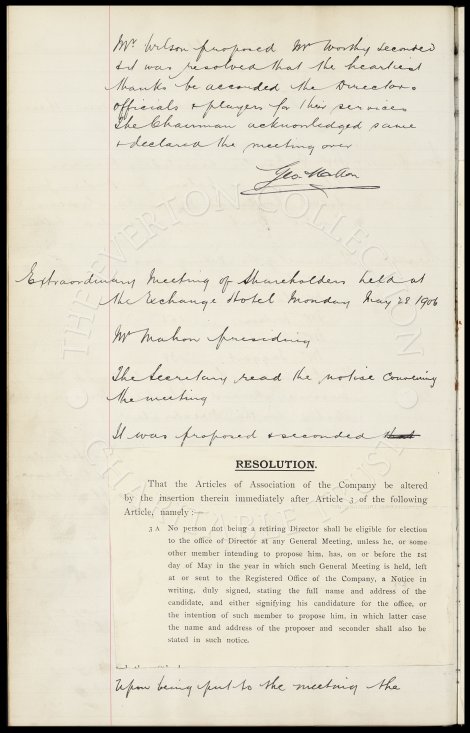 Mr Wilson proposed Mr Worthy seconded
& it was resolved that the heartiest
thanks be accorded the Directors
officials & players for their services
The Chairman acknowledged same
& declared the meeting over
Geo. Mahon
Extraordinary Meeting of Shareholders held at
the Exchange Hotel Monday May 28 1906
Mr Mahon presiding
The Secretary read the notice convening
the meeting
It was proposed & seconded that
RESOLUTION.
That the Articles of Association of the Company be altered
by the insertion therein immediately after Article 3 of the following
Article, namely:—
3 A No person not being a retiring Director shall be eligible for election
to the office of Director at any General Meeting, unless he, or some
other member intending to propose him, has, on or before the 1st
day of May in the year in which such General Meeting is held, left
at or sent to the Registered Office of the Company, a Notice in
writing, duly signed, stating the full name and address of the
candidate, and either signifying his candidature for the office, or
the intention of such member to propose him, in which latter case
the name and address of the proposer and seconder shall also be
stated in such notice.
Upon being put to the meeting the
THE EVERTON COLLECTION
CHARITABLE TRUST